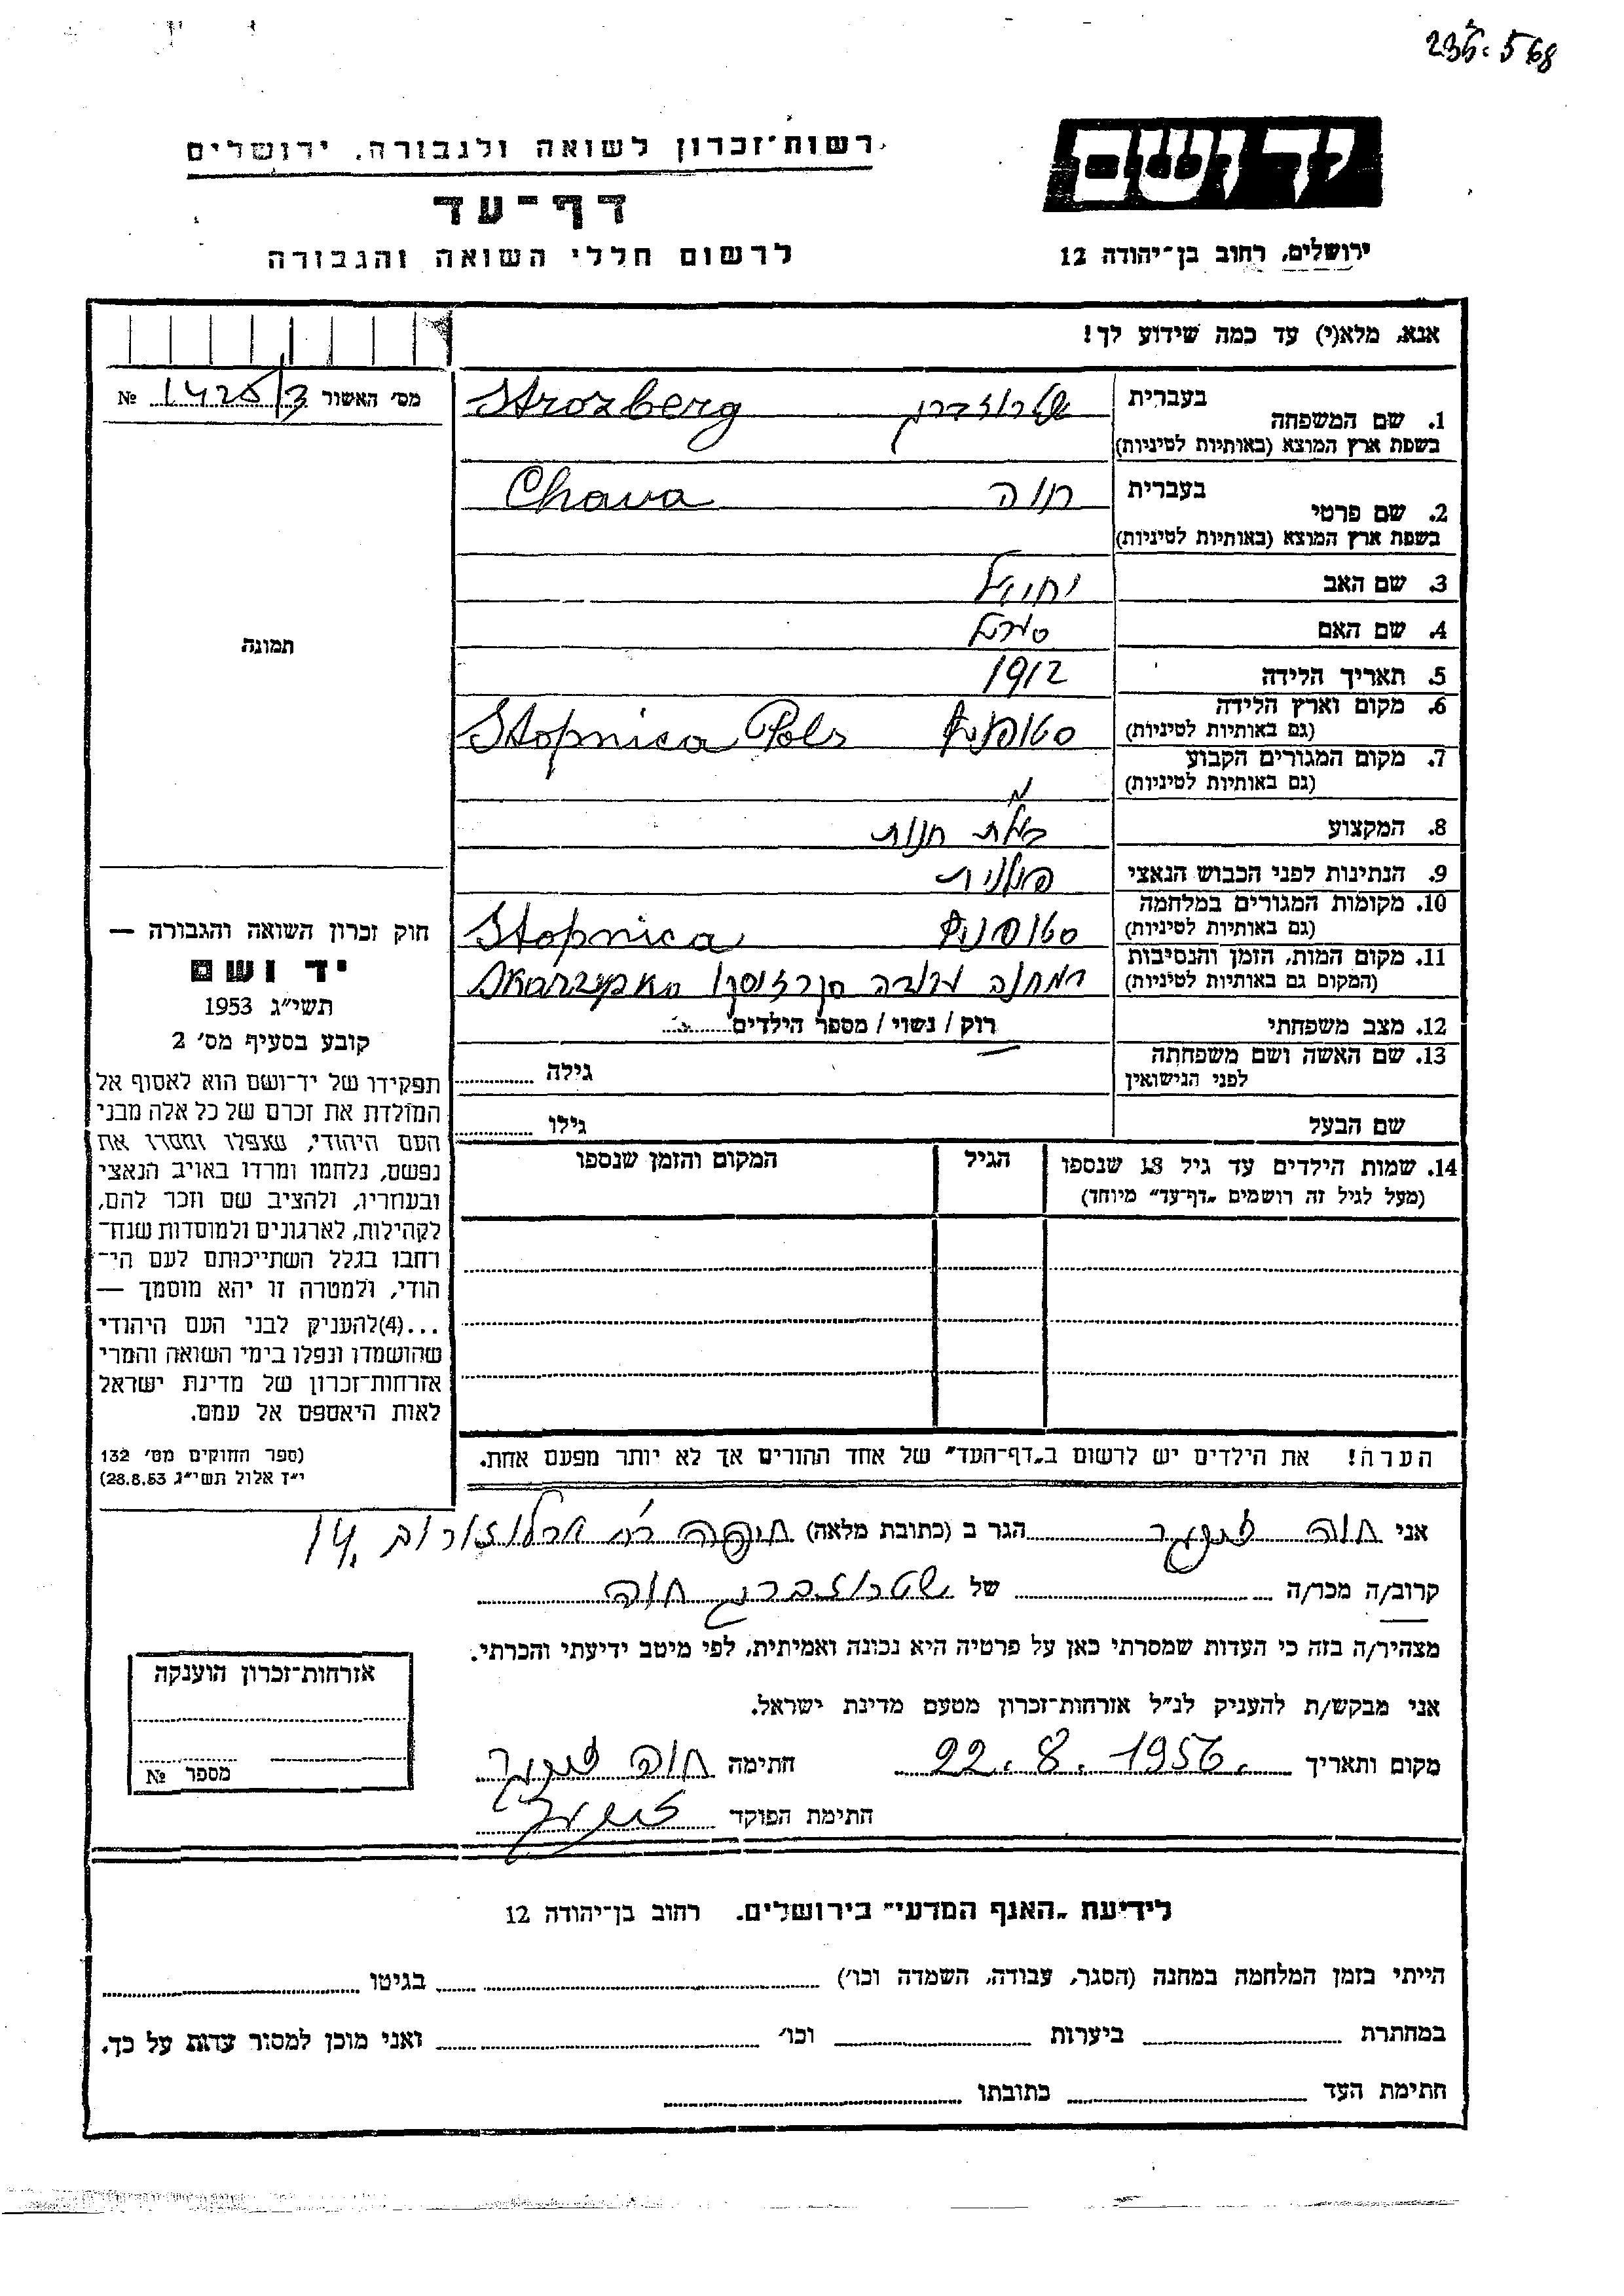 235.568
רשות־זכרון לשואה ולגבורה, ירושלים
יד ושם
דף־עד
לרשום חללי השואה והגבורה
ירושלים, רחוב בן־יהודה 12
אנא, מלא(י) עד כמה שידוע לך!
מס׳ האשור 1425/3 №
תמונה
1. שם המשפחה
בעברית שטרוזברג Strozberg
בשפת ארץ המוצא (באותיות לטיניות)
2. שם פרטי
בעברית חוה Chava
בשפת ארץ המוצא (באותיות לטיניות)
3. שם האב
4. שם האם
5. תאריך הלידה 1912
6. מקום וארץ הלידה סטופניץ Stopnica
(גם באותיות לטיניות)
7. מקום המגורים הקבוע
(גם באותיות לטיניות)
8. המקצוע בעלת חנות
9. הנתינות לפני הכבוש הנאצי פולנית
10. מקומות המגורים במלחמה סטופניץ Stopnica
(גם באותיות לטיניות)
11. מקום המות, הזמן והנסיבות במחנה עבודה
(המקום גם באותיות לטיניות)
12. מצב משפחתי רוק / נשוי / מספר הילדים
13. שם האשה ושם משפחתה
לפני הנישואין
גילה
שם הבעל גילו
14. שמות הילדים עד גיל 18 שנספו הגיל המקום והזמן שנספו
(מעל לגיל זה רושמים „דף־עד” מיוחד)
הערה! את הילדים יש לרשום ב„דף־העד” של אחד ההורים אך לא יותר מפעם אחת.
חוק זכרון השואה והגבורה —
יד ושם
תשי״ג 1953
קובע בסעיף מס׳ 2
תפקידו של יד־ושם הוא לאסוף אל
המולדת את זכרם של כל אלה מבני
העם היהודי, שנפלו ומסרו את
נפשם, נלחמו ומרדו באויב הנאצי
ובעוזריו, ולהציב שם וזכר להם,
לקהילות, לארגונים ולמוסדות שנח־
רבו בגלל השתייכותם לעם הי־
הודי, ולמטרה זו יהא מוסמך —
...(4)להעניק לבני העם היהודי
שהושמדו ונפלו בימי השואה והמרי
אזרחות־זכרון של מדינת ישראל
לאות היאספם אל עמם.
(ספר החוקים מס׳ 132
י״ז אלול תשי״ג 28.8.53)
אני חוה הגר ב (כתובת מלאה) חיפה ארלוזורוב 14.
קרוב/ה מכר/ה של שטרוזברג חוה
מצהיר/ה בזה כי העדות שמסרתי כאן על פרטיה היא נכונה ואמיתית, לפי מיטב ידיעתי והכרתי.
אני מבקש/ת להעניק לנ״ל אזרחות־זכרון מטעם מדינת ישראל.
מקום ותאריך 22.8.1956. חתימה חוה
חתימת הפוקד
אזרחות־זכרון הוענקה
מספר №
לידיעת „האגף המדעי” בירושלים. רחוב בן־יהודה 12
הייתי בזמן המלחמה במחנה (הסגר, עבודה, השמדה וכו׳) בגיטו
במחתרת ביערות וכו׳ ואני מוכן למסור עדות על כך.
חתימת העד כתובתו